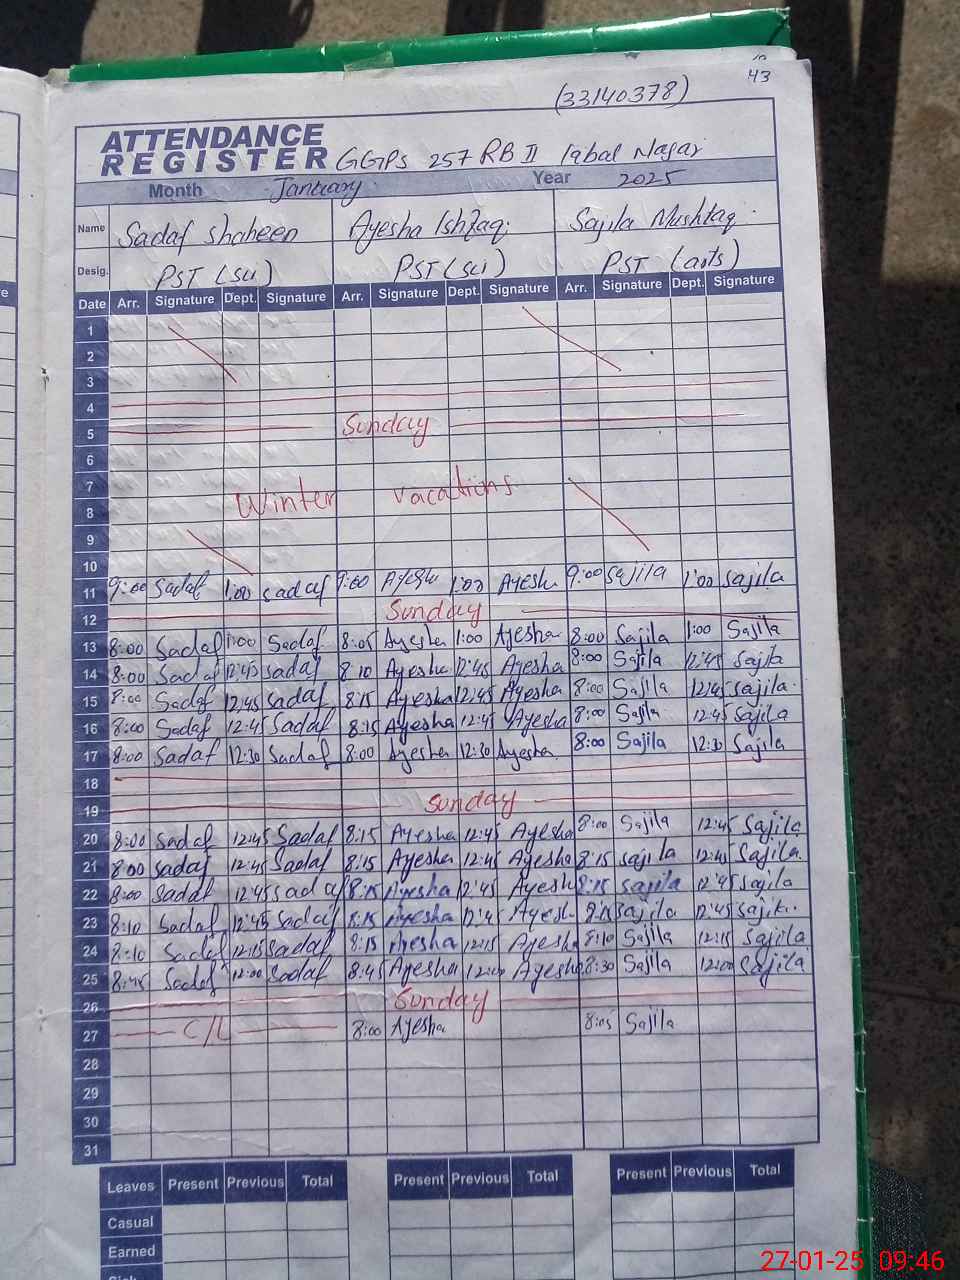 43
(33140378)
ATTENDANCE
REGISTER GGPS 257 RB II Iqbal Nagar
Month January Year 2025
Name Sadaf Shaheen Ayesha Ishfaq Sajila Mushtaq
Desig. PST (sci) PST (sci) PST (arts)
Date Arr. Signature Dept. Signature Arr. Signature Dept. Signature Arr. Signature Dept. Signature
1
2
3
4
5 Sunday
6
7
8 Winter vacations
9
10
11 9:00 Sadaf 1:00 sadaf 9:00 Ayesha 1:00 Ayesha 9:00 Sajila 1:00 Sajila
12 Sunday
13 8:00 Sadaf 1:00 Sadaf 8:05 Ayesha 1:00 Ayesha 8:00 Sajila 1:00 Sajila
14 8:00 Sadaf 12:45 sadaf 8:10 Ayesha 12:45 Ayesha 8:00 Sajila 12:45 Sajila
15 8:00 Sadaf 12:45 sadaf 8:15 Ayesha 12:45 Ayesha 8:00 Sajila 12:45 sajila.
16 8:00 Sadaf 12:45 Sadaf 8:15 Ayesha 12:45 Ayesha 8:00 Sajila 12:45 Sajila
17 8:00 Sadaf 12:30 Sadaf 8:00 Ayesha 12:30 Ayesha 8:00 Sajila 12:30 Sajila
18
19 Sunday
20 8:00 Sadaf 12:45 Sadaf 8:15 Ayesha 12:45 Ayesha 8:00 Sajila 12:45 Sajila
21 8:00 sadaf 12:45 Sadaf 8:15 Ayesha 12:45 Ayesha 8:15 sajila 12:45 Sajila.
22 8:00 Sadaf 12:45 sadaf 8:15 Ayesha 12:45 Ayesha 8:15 sajila 12:45 Sajila
23 8:10 Sadaf 12:45 sadaf 8:15 Ayesha 12:45 Ayesha 8:15 sajila 12:45 sajila.
24 8:10 Sadaf 12:15 sadaf 8:15 Ayesha 12:15 Ayesha 8:10 Sajila 12:15 Sajila
25 8:45 Sadaf 12:00 Sadaf 8:45 Ayesha 12:00 Ayesha 8:30 Sajila 12:00 Sajila
26 Sunday
27 C/L 8:00 Ayesha 8:05 Sajila
28
29
30
31
Leaves Present Previous Total Present Previous Total Present Previous Total
Casual
Earned
27-01-25 09:46